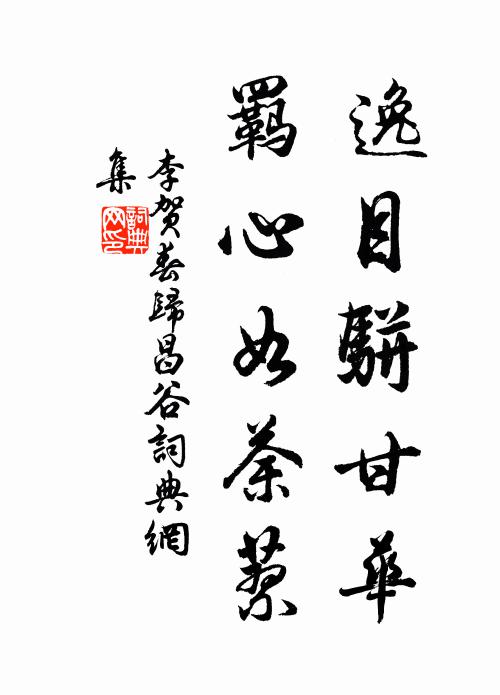 逸目駢甘華
羈心如荼蓼
李贺春歸昌谷詞典網
集
詞典网印